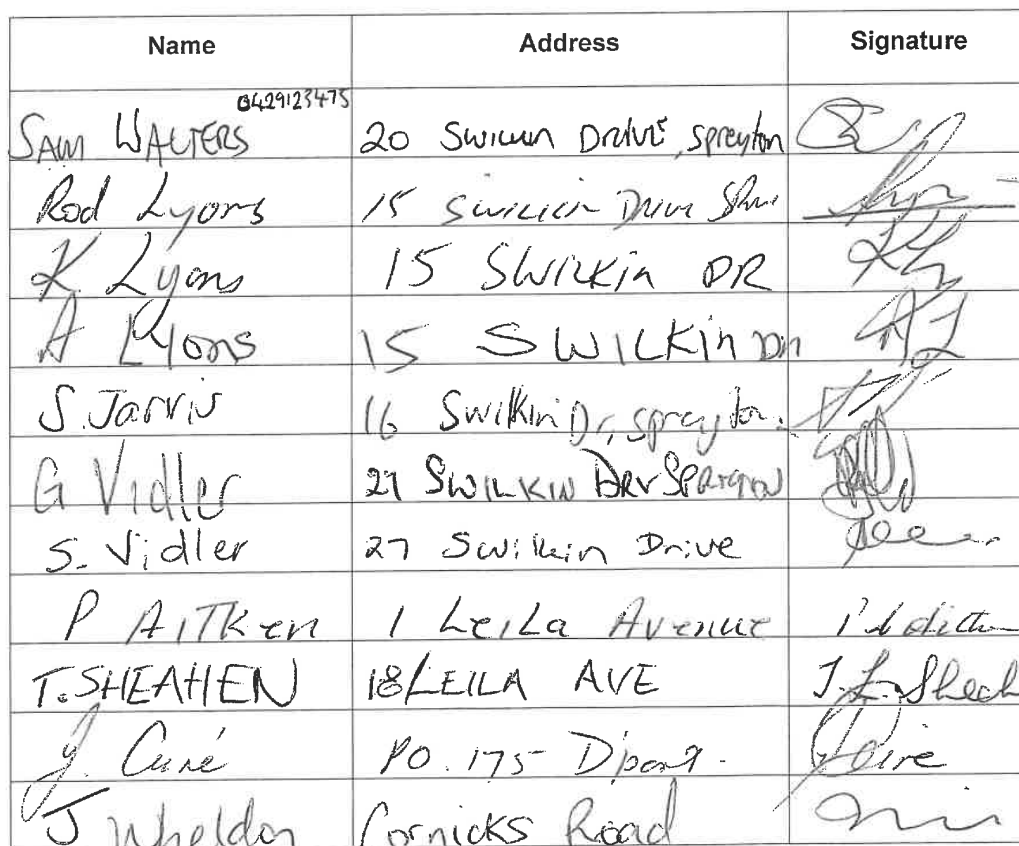 Name Address Signature
0429123475
SAM WALTERS 20 SWILKIN DRIVE, Spreyton
Rod Lyons 15 Swilkin Drive
K. Lyons 15 SWILKIN DR KL
A Lyons 15 SWILKIN DR AL
S. Jarvis 16 Swilkin Dr, Spreyton.
G Vidler 27 SWILKIN DRV SPREYTON
S. Vidler 27 Swilkin Drive
P AITKen 1 LeiLa Avenue
T. SHEAHEN 18 LEILA AVE T. L. Sheah
J. Curé PO. 175 D'port.
J Wheldon Cornicks Road